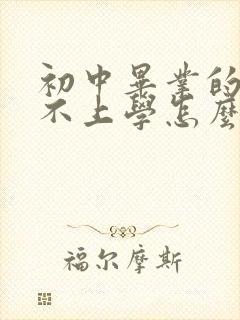 初中畢業的
不上學怎麼
福尔摩斯